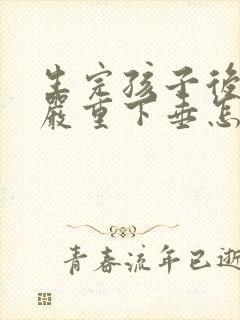 生完孩子後
嚴重下垂怎
青春流年已逝